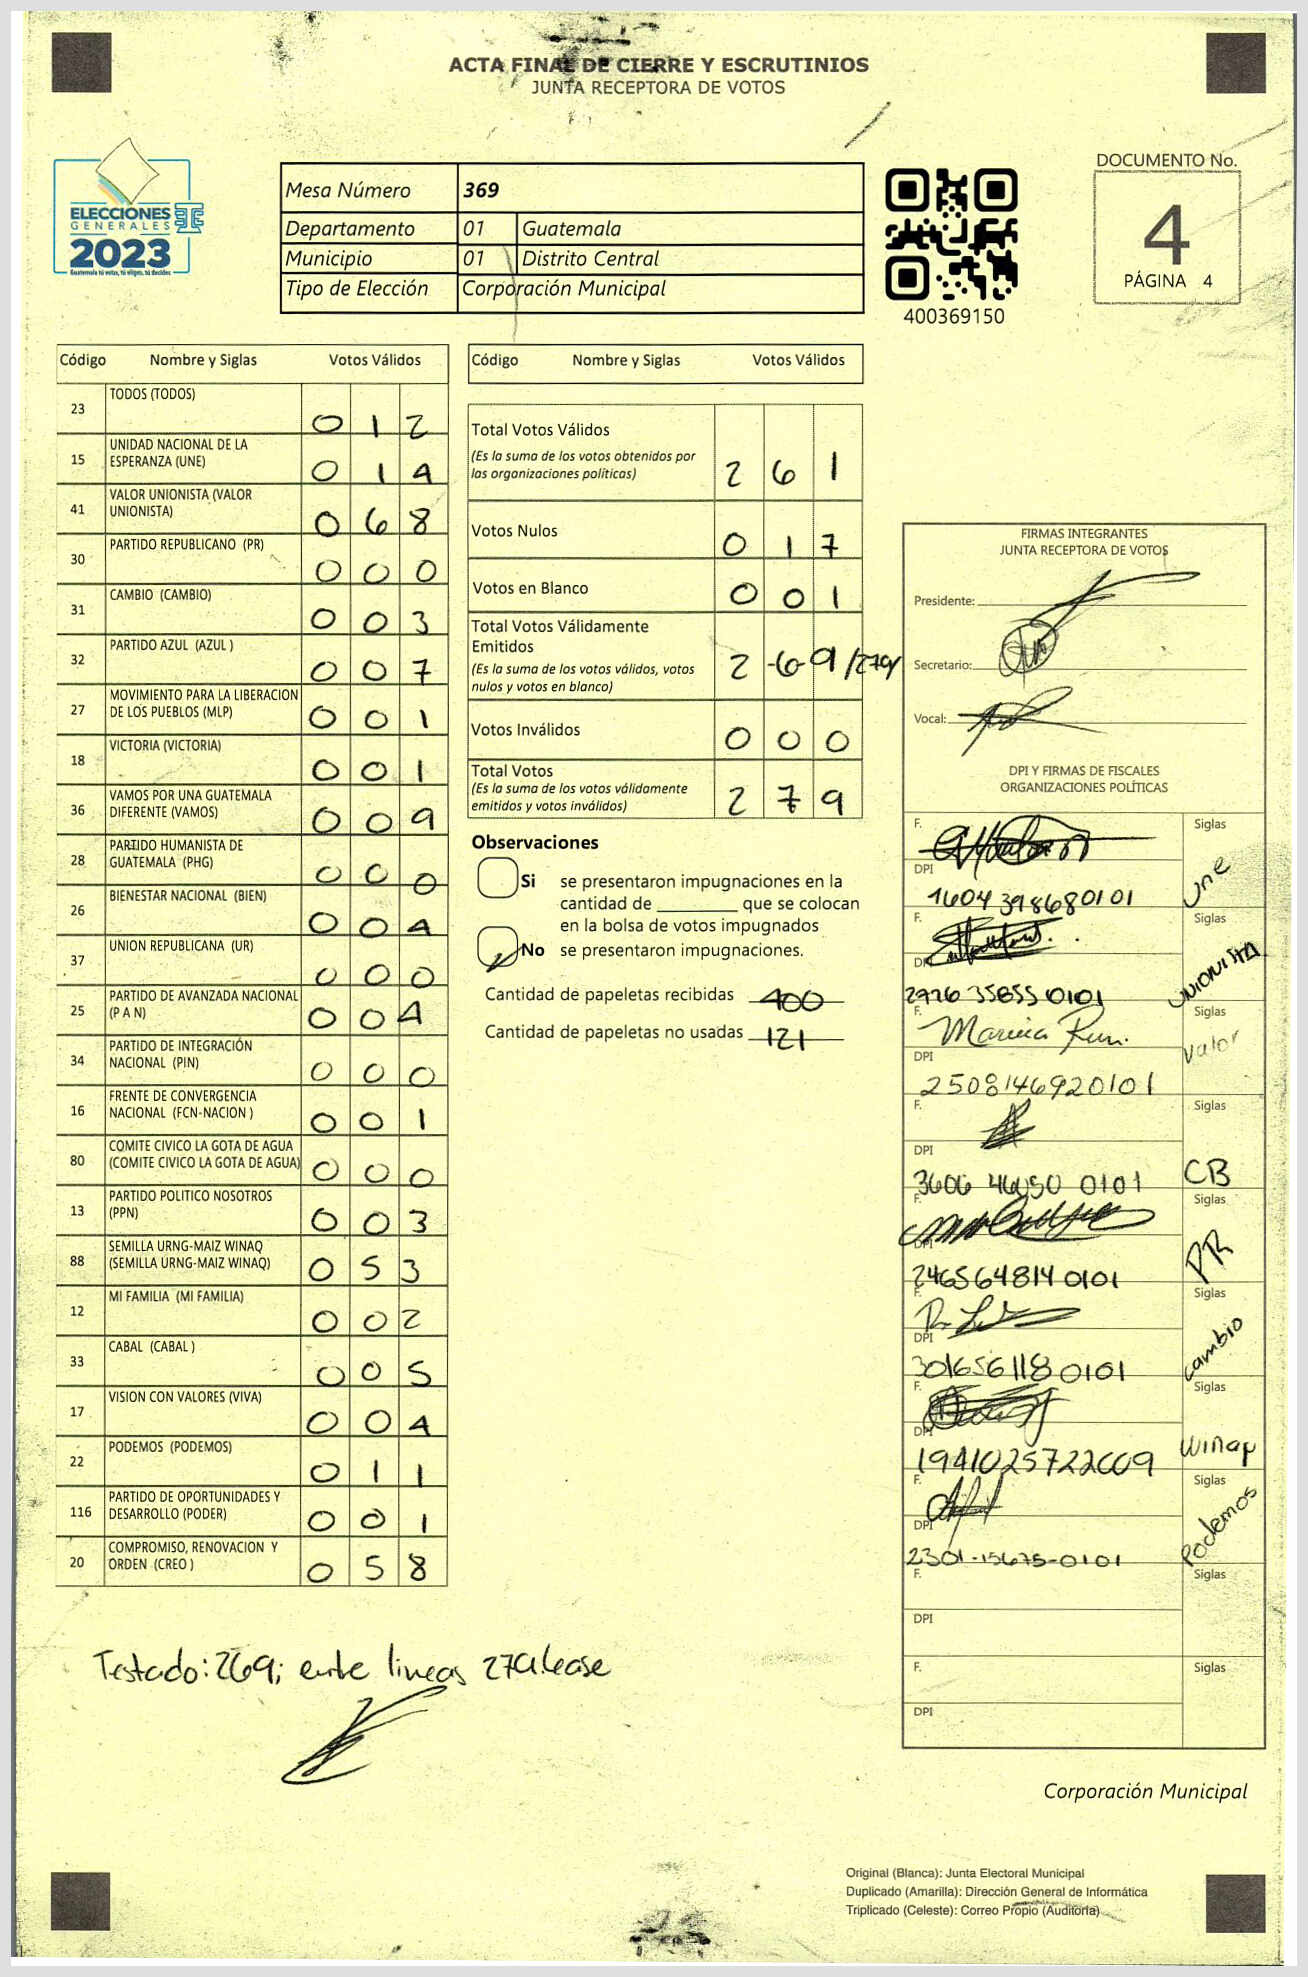 ACTA FINAL DE CIERRE Y ESCRUTINIOS
JUNTA RECEPTORA DE VOTOS
ELECCIONES
GENERALES
2023
Guatemala tú votas, tú eliges, tú decides
Mesa Número 369
Departamento 01 Guatemala
Municipio 01 Distrito Central
Tipo de Elección Corporación Municipal
400369150
DOCUMENTO No.
4
PÁGINA 4
Código Nombre y Siglas Votos Válidos
23 TODOS (TODOS) 0 1 2
15 UNIDAD NACIONAL DE LA
ESPERANZA (UNE) 0 1 4
41 VALOR UNIONISTA (VALOR
UNIONISTA) 0 6 8
30 PARTIDO REPUBLICANO (PR) 0 0 0
31 CAMBIO (CAMBIO) 0 0 3
32 PARTIDO AZUL (AZUL ) 0 0 7
27 MOVIMIENTO PARA LA LIBERACION
DE LOS PUEBLOS (MLP) 0 0 1
18 VICTORIA (VICTORIA) 0 0 1
36 VAMOS POR UNA GUATEMALA
DIFERENTE (VAMOS) 0 0 9
28 PARTIDO HUMANISTA DE
GUATEMALA (PHG) 0 0 0
26 BIENESTAR NACIONAL (BIEN) 0 0 4
37 UNION REPUBLICANA (UR) 0 0 0
25 PARTIDO DE AVANZADA NACIONAL
(P A N) 0 0 4
34 PARTIDO DE INTEGRACIÓN
NACIONAL (PIN) 0 0 0
16 FRENTE DE CONVERGENCIA
NACIONAL (FCN-NACION ) 0 0 1
80 COMITE CIVICO LA GOTA DE AGUA
(COMITE CIVICO LA GOTA DE AGUA) 0 0 0
13 PARTIDO POLITICO NOSOTROS
(PPN) 0 0 3
88 SEMILLA URNG-MAIZ WINAQ
(SEMILLA URNG-MAIZ WINAQ) 0 5 3
12 MI FAMILIA (MI FAMILIA) 0 0 2
33 CABAL (CABAL ) 0 0 5
17 VISION CON VALORES (VIVA) 0 0 4
22 PODEMOS (PODEMOS) 0 1 1
116 PARTIDO DE OPORTUNIDADES Y
DESARROLLO (PODER) 0 0 1
20 COMPROMISO, RENOVACION Y
ORDEN (CREO ) 0 5 8
Código Nombre y Siglas Votos Válidos
Total Votos Válidos
(Es la suma de los votos obtenidos por
las organizaciones políticas) 2 6 1
Votos Nulos 0 1 7
Votos en Blanco 0 0 1
Total Votos Válidamente
Emitidos
(Es la suma de los votos válidos, votos
nulos y votos en blanco) 2 -6-9 /279/
Votos Inválidos 0 0 0
Total Votos
(Es la suma de los votos válidamente
emitidos y votos inválidos) 2 7 9
Observaciones
Si se presentaron impugnaciones en la
cantidad de ________ que se colocan
en la bolsa de votos impugnados
No se presentaron impugnaciones.
Cantidad de papeletas recibidas 400
Cantidad de papeletas no usadas 121
FIRMAS INTEGRANTES
JUNTA RECEPTORA DE VOTOS
Presidente:
Secretario:
Vocal:
DPI Y FIRMAS DE FISCALES
ORGANIZACIONES POLÍTICAS
F. Siglas
DPI une
1604 39868 0101
F. Siglas
DPI UNIONISTA
2776 35855 0101
F. Marina Siglas
DPI Valor
2508146920101
F. Siglas
DPI CB
3606 0101
F. Siglas
DPI PR
246564814 0101
F. Siglas
DPI cambio
301656118 0101
F. Siglas
DPI winaq
1941025722009
F. Siglas
DPI Podemos
2301-15675-0101
F. Siglas
DPI
F. Siglas
DPI
Testado: 269; entre lineas 279. lease
Corporación Municipal
Original (Blanca): Junta Electoral Municipal
Duplicado (Amarilla): Dirección General de Informática
Triplicado (Celeste): Correo Propio (Auditoría)